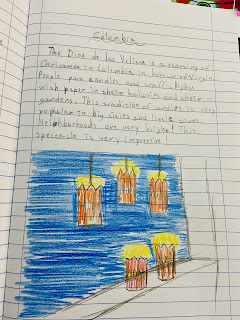 Colombia
The Dias de las Velitas is
Chrissmas in Colombia in honor of Virgin
People put candles and
with paper in there balconies and there
gardens. This tradision of candles is very
popular in big cities and little towns
Neighborhoods are very brighs! This
spectacle is very impressive